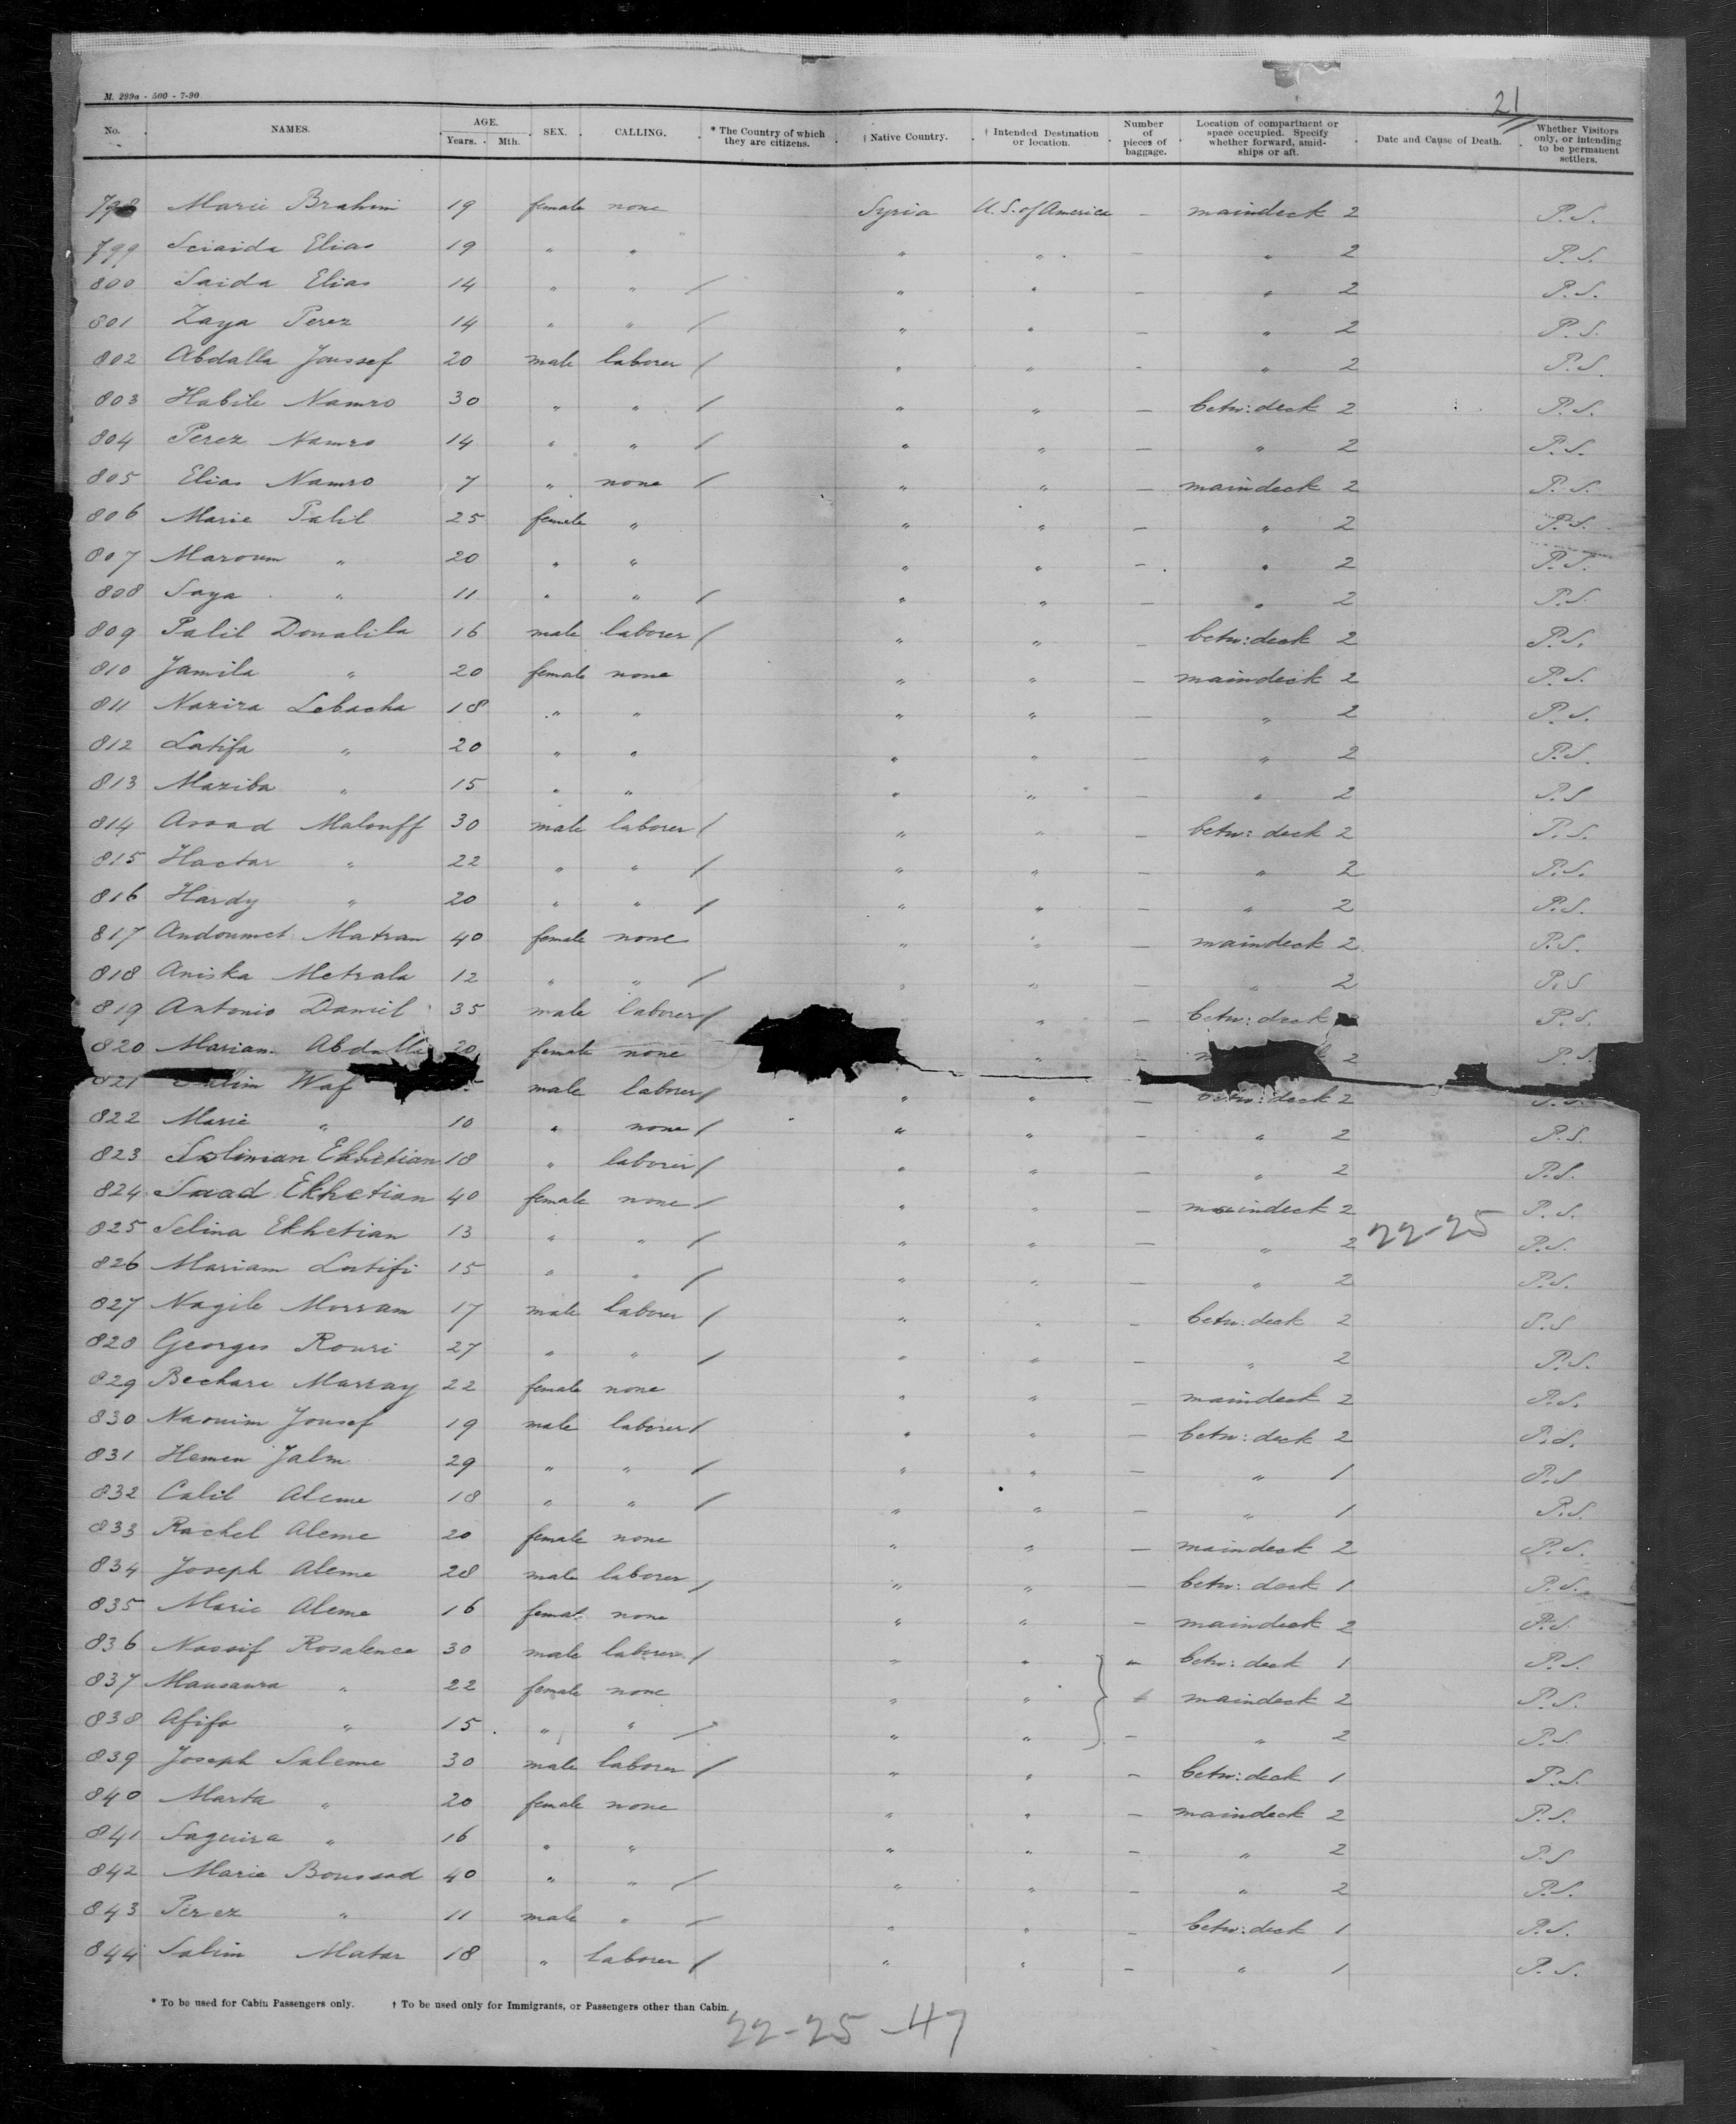 M. 299a - 500 - 7-90.
21
No. NAMES. AGE. Years. Mth. SEX. CALLING. * The Country of which they are citizens. † Native Country. † Intended Destination or location. Number of pieces of baggage. Location of compartment or space occupied. Specify whether forward, amidships or aft. Date and Cause of Death. Whether Visitors only, or intending to be permanent settlers.
798 Marie Brahim 19 female none Syria U.S. of America — maindeck 2 P.S.
799 Sciaida Elias 19 " " " " — " 2 P.S.
800 Saida Elias 14 " " / " " — " 2 P.S.
801 Zaya Perez 14 " " / " " — " 2 P.S.
802 Abdalla Joussef 20 male laborer / " " — " 2 P.S.
803 Habile Namro 30 " " / " " — betw: deck 2 P.S.
804 Perez Namro 14 " " / " " — " 2 P.S.
805 Elias Namro 7 " none / " " — maindeck 2 P.S.
806 Marie Palil 25 female " " " — " 2 P.S.
807 Maroum " 20 " " " " — " 2 P.S.
808 Saya " 11 " " / " " — " 2 P.S.
809 Palil Donalila 16 male laborer / " " — betw: deck 2 P.S.
810 Jamila " 20 female none " " — maindeck 2 P.S.
811 Nazira Lebacha 18 " " " " — " 2 P.S.
812 Latifa " 20 " " " " — " 2 P.S.
813 Maziba " 15 " " " " — " 2 P.S
814 Assad Malouff 30 male laborer / " " — betw: deck 2 P.S.
815 Hactar " 22 " " / " " — " 2 P.S.
816 Hardy " 20 " " / " " — " 2 P.S.
817 Andoumet Matran 40 female none " " — maindeck 2 P.S.
818 Aniska Metrala 12 " " / " " — " 2 P.S
819 Antonio Daniel 35 male laborer / " " — betw: deck P.S.
820 Mariam Abdalla 20 female none " — 2 P.S.
821 Salim Waf male laborer / " " — betw: deck 2 P.S.
822 Marie " 10 " none / " " — " 2 P.S.
823 Soliman Ekhetian 18 " laborer / " " — " 2 P.S.
824 Saad Ekhetian 40 female none / " " — maindeck 2 P.S.
825 Selina Ekhetian 13 " " / " " — " 2 22-25 P.S.
826 Mariam Latifi 15 " " / " " — " 2 P.S.
827 Nagile Morram 17 male laborer / " " — betw: deck 2 P.S
828 Georges Rouri 27 " " / " " — " 2 P.S.
829 Bechare Marray 22 female none " " — maindeck 2 P.S.
830 Naouim Jousef 19 male laborer / " " — betw: deck 2 P.S.
831 Hemen Jalm 29 " " / " " — " 1 P.S
832 Calil Aleme 18 " " / " " — " 1 P.S.
833 Rachel Aleme 20 female none " " — maindeck 2 P.S.
834 Joseph Aleme 28 male laborer / " " — betw: deck 1 P.S.
835 Marie Aleme 16 femal. none " " — maindeck 2 P.S.
836 Nassif Rosalence 30 male laborer / " " — betw: deck 1 P.S.
837 Mansaura " 22 female none " " maindeck 2 P.S.
838 Afifa " 15 " " / " " — " 2 P.S.
839 Joseph Saleme 30 male laborer / " " — betw: deck 1 P.S.
840 Marta " 20 female none " " — maindeck 2 P.S.
841 Saguira " 16 " " " " — " 2 P.S
842 Marie Boussad 40 " " / " " — " 2 P.S.
843 Perez " 11 male " / " " — betw: deck 1 P.S.
844 Salim Matar 18 " laborer / " " — " 1 P.S.
* To be used for Cabin Passengers only. † To be used only for Immigrants, or Passengers other than Cabin.
22-25-47